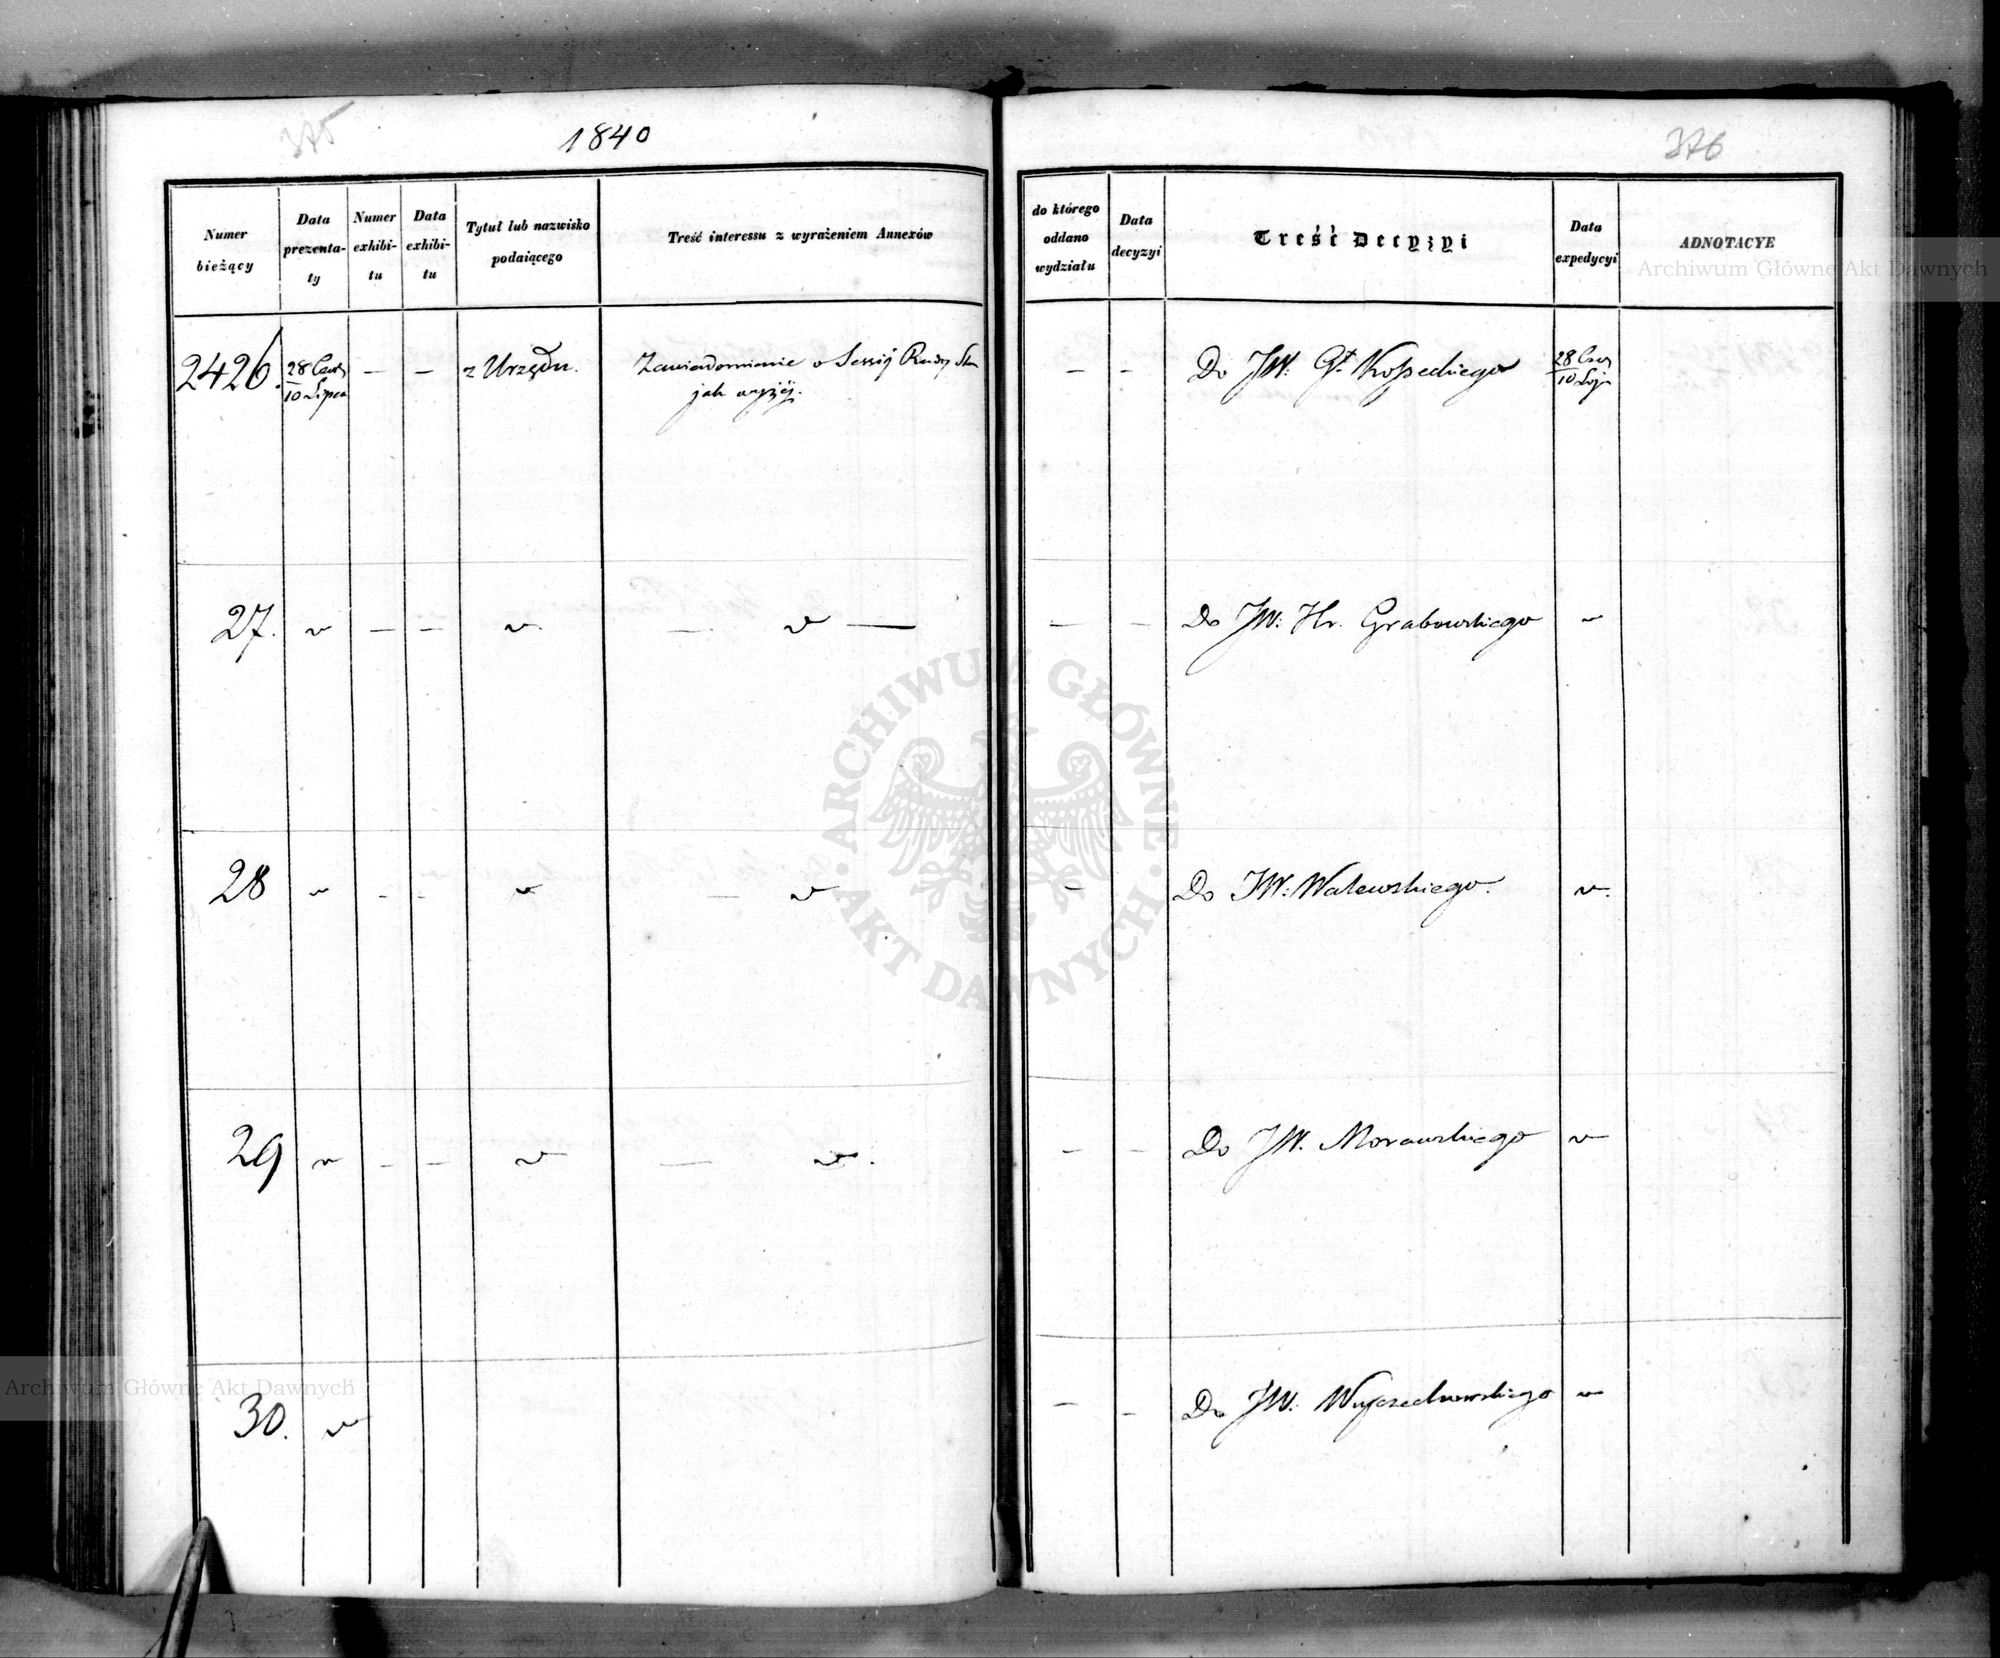 375
1840
Numer bieżący
Data prezenta- ty
Numer exhibi- tu
Data exhibi- tu
Tytuł lub nazwisko podaiącego
Treść interessu z wyrażeniem Annexów
2426. 28 Czer / 10 Lipca — — z Urzędu. Zawiadomienie o Sessij Rady Stu
jak wyżéj.
27. v — — v. — v —
28 v - - v — v
29 v - - v — v.
30. v
376
do którego oddano wydziału
Data decyzyi
Treść Decyzyi
Data expedycyi
ADNOTACYE
— - Do JW. Gł Kosseckiego 28 Czer / 10 Lip
— - Do JW: Hr. Grabowskiego v
- Do JW: Walewskiego. v.
- - Do JW. Morawskiego v
- - Do JW: Wyczechowskiego v
ARCHIWUM GŁÓWNE · AKT DAWNYCH ·
Archiwum Główne Akt Dawnych
Archiwum Główne Akt Dawnych